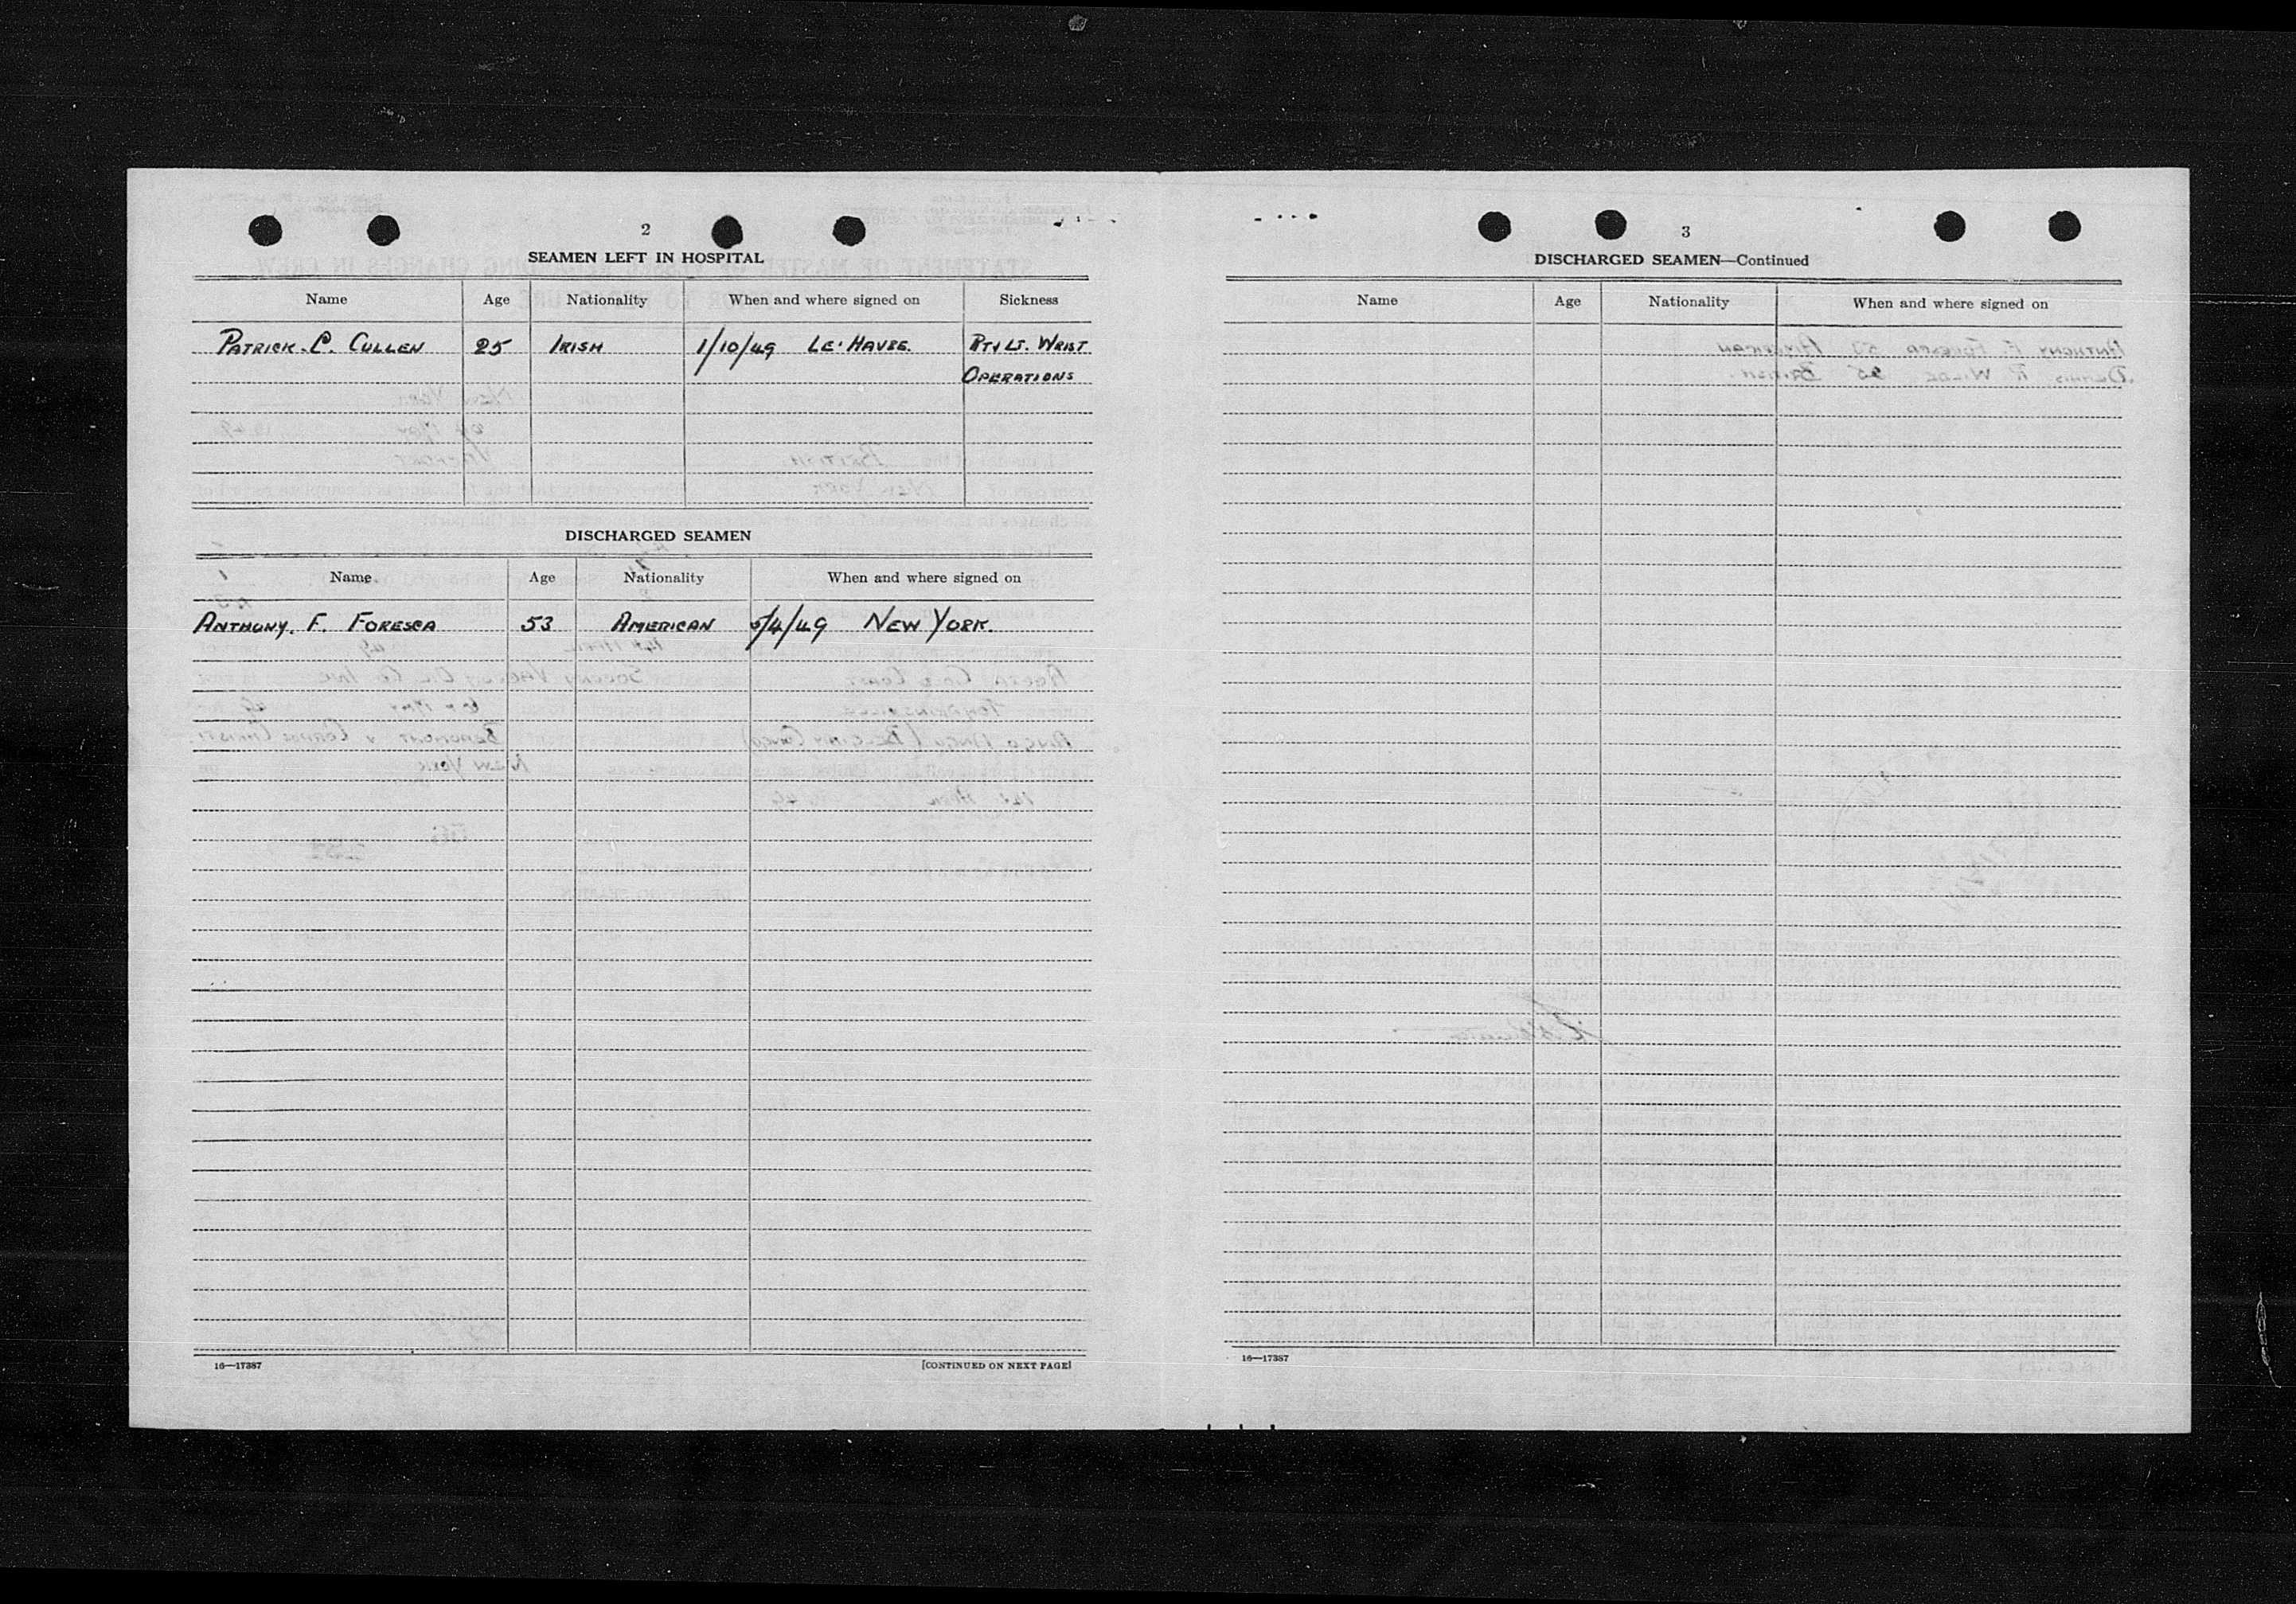 2
SEAMEN LEFT IN HOSPITAL
Name Age Nationality When and where signed on Sickness
PATRICK. C. CULLEN 25 IRISH 1/10/49 LE'HAVRE. RT & LT. WRIST
OPERATIONS
DISCHARGED SEAMEN
Name Age Nationality When and where signed on
ANTHONY. F. FORESCA 53 AMERICAN 5/4/49 NEW YORK.
16—17387 [CONTINUED ON NEXT PAGE]
3
DISCHARGED SEAMEN—Continued
Name Age Nationality When and where signed on
16—17387